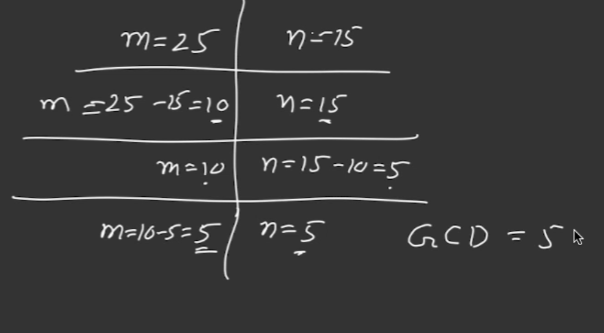 m=25 n=15
m=25-15=10 n=15
m=10 n=15-10=5
m=10-5=5 n=5 GCD = 5